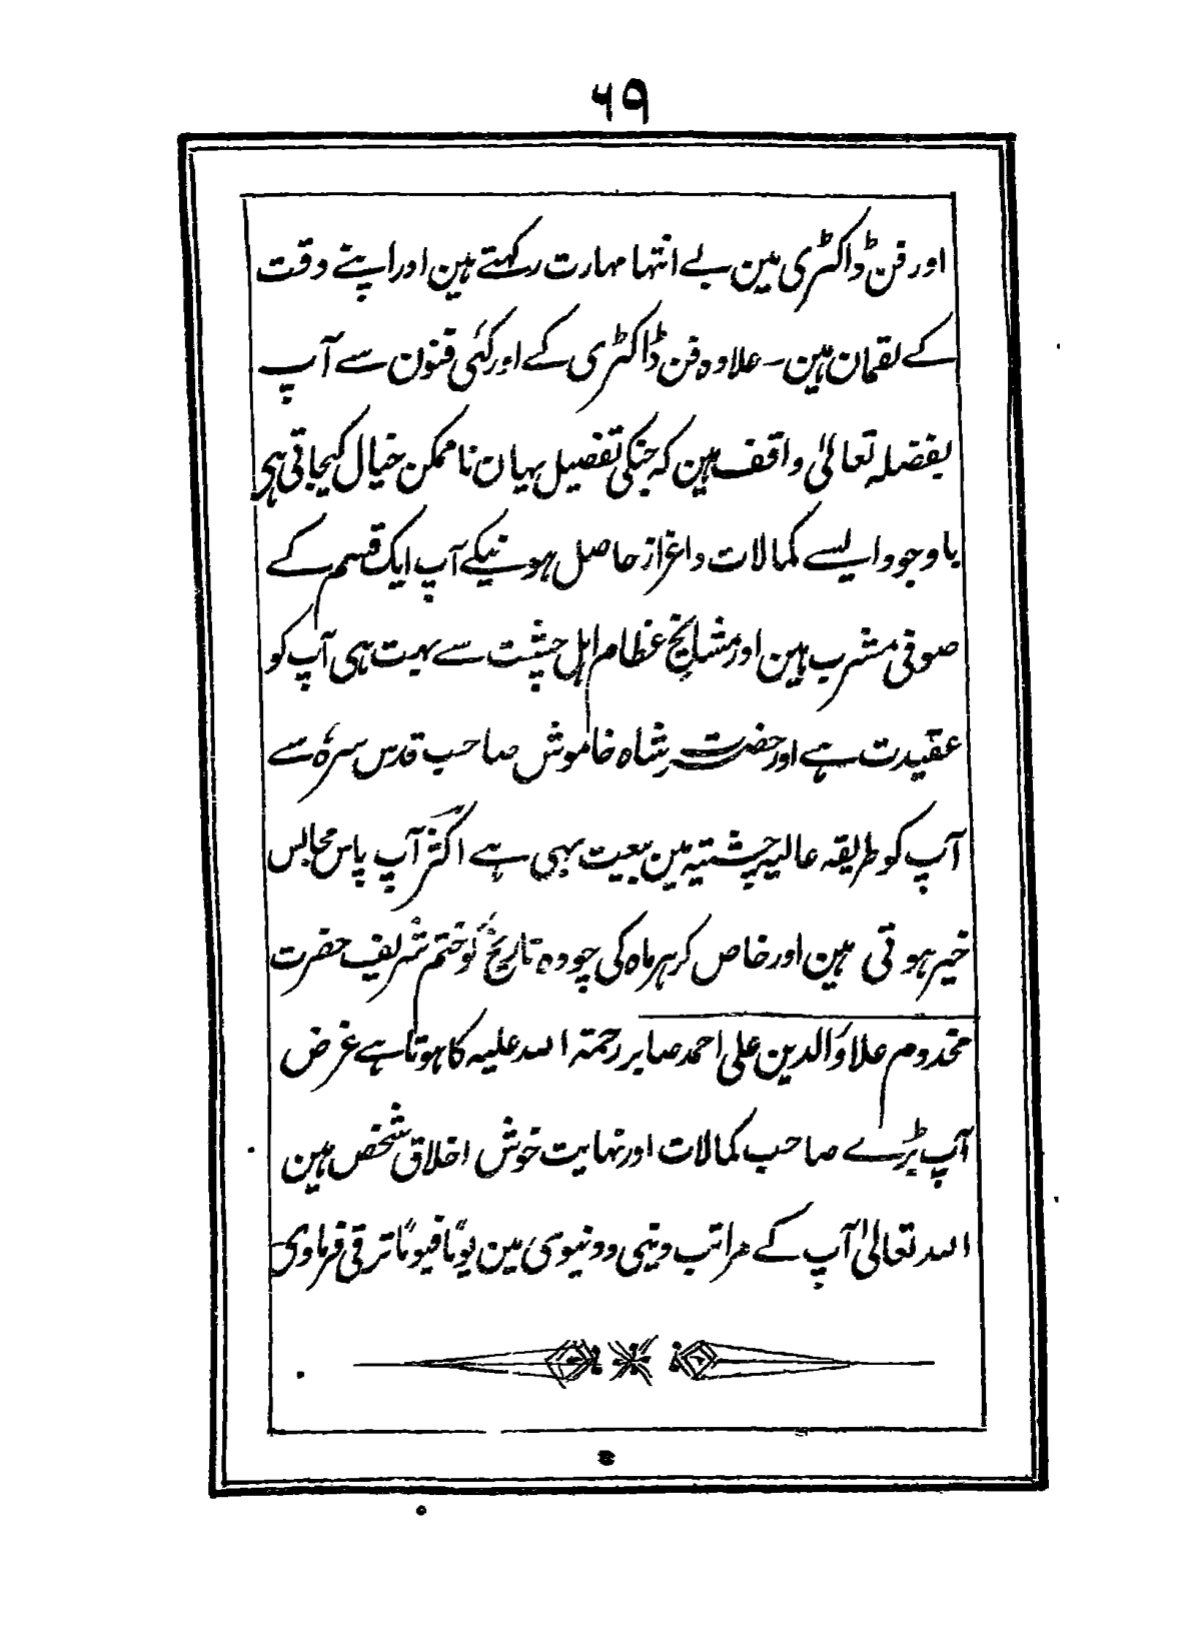 ۶۹
اور فن ڈاکٹری مین بے انتہا مہارت رکہتے ہین اور اپنے وقت
کے لقمان ہین ۔ علاوہ فن ڈاکٹری کے اور کئی فنون سے آپ
بفضلہ تعالیٰ واقف ہین کہ جنکی تفصیل بیان ناممکن خیال کیجاتی ہی
باوجود ایسے کمالات و اعزاز حاصل ہونیکے آپ ایک قسم کے
صوفی مشرب ہین اور مشایخ عظام اہل چشت سے بہت ہی آپ کو
عقیدت ہے اور حضرت شاہ خاموش صاحب قدس سرہٗ سے
آپ کو طریقہ عالیہ چشتیہ مین بیعت بہی ہے اکثر آپ پاس مجالس
خیر ہوتی ہین اور خاص کر ہر ماہ کی چودہ تاریخ کو ختم شریف حضرت
مخدوم علاؤالدین علی احمد صابر رحمۃ اللہ علیہ کا ہوتا ہے غرض
آپ بڑے صاحب کمالات اور نہایت خوش اخلاق شخص ہین
اللہ تعالیٰ آپ کے مراتب دینی و دنیوی مین یوماً فیوماً ترقی فرماوی